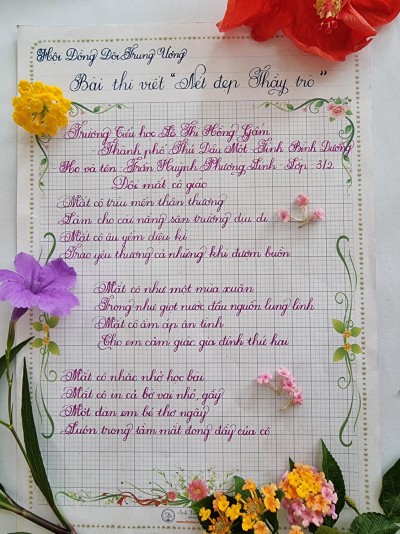 Hội Đồng Đội Trung Ương
Bài thi viết "Nét đẹp Thầy trò"
Trường Tiểu học Lê Thị Hồng Gấm
Thành phố Thủ Dầu Một - Tỉnh Bình Dương
Họ và tên: Trần Huỳnh Phương Linh Lớp: 3/2
Đôi mắt cô giáo
Mắt cô trìu mến thân thương
Làm cho cái nắng sân trường dịu đi
Mắt cô âu yếm diệu kì
Trao yêu thương cả những khi dượm buồn
Mắt cô như một mùa xuân
Trong như giọt nước đầu nguồn lung linh
Mắt cô ấm áp ân tình
Cho em cảm giác gia đình thứ hai
Mắt cô nhắc nhở học bài
Mắt cô in cả bờ vai nhỏ, gầy
Một đàn em bé thơ ngây
Luôn trong tầm mắt đong đầy của cô